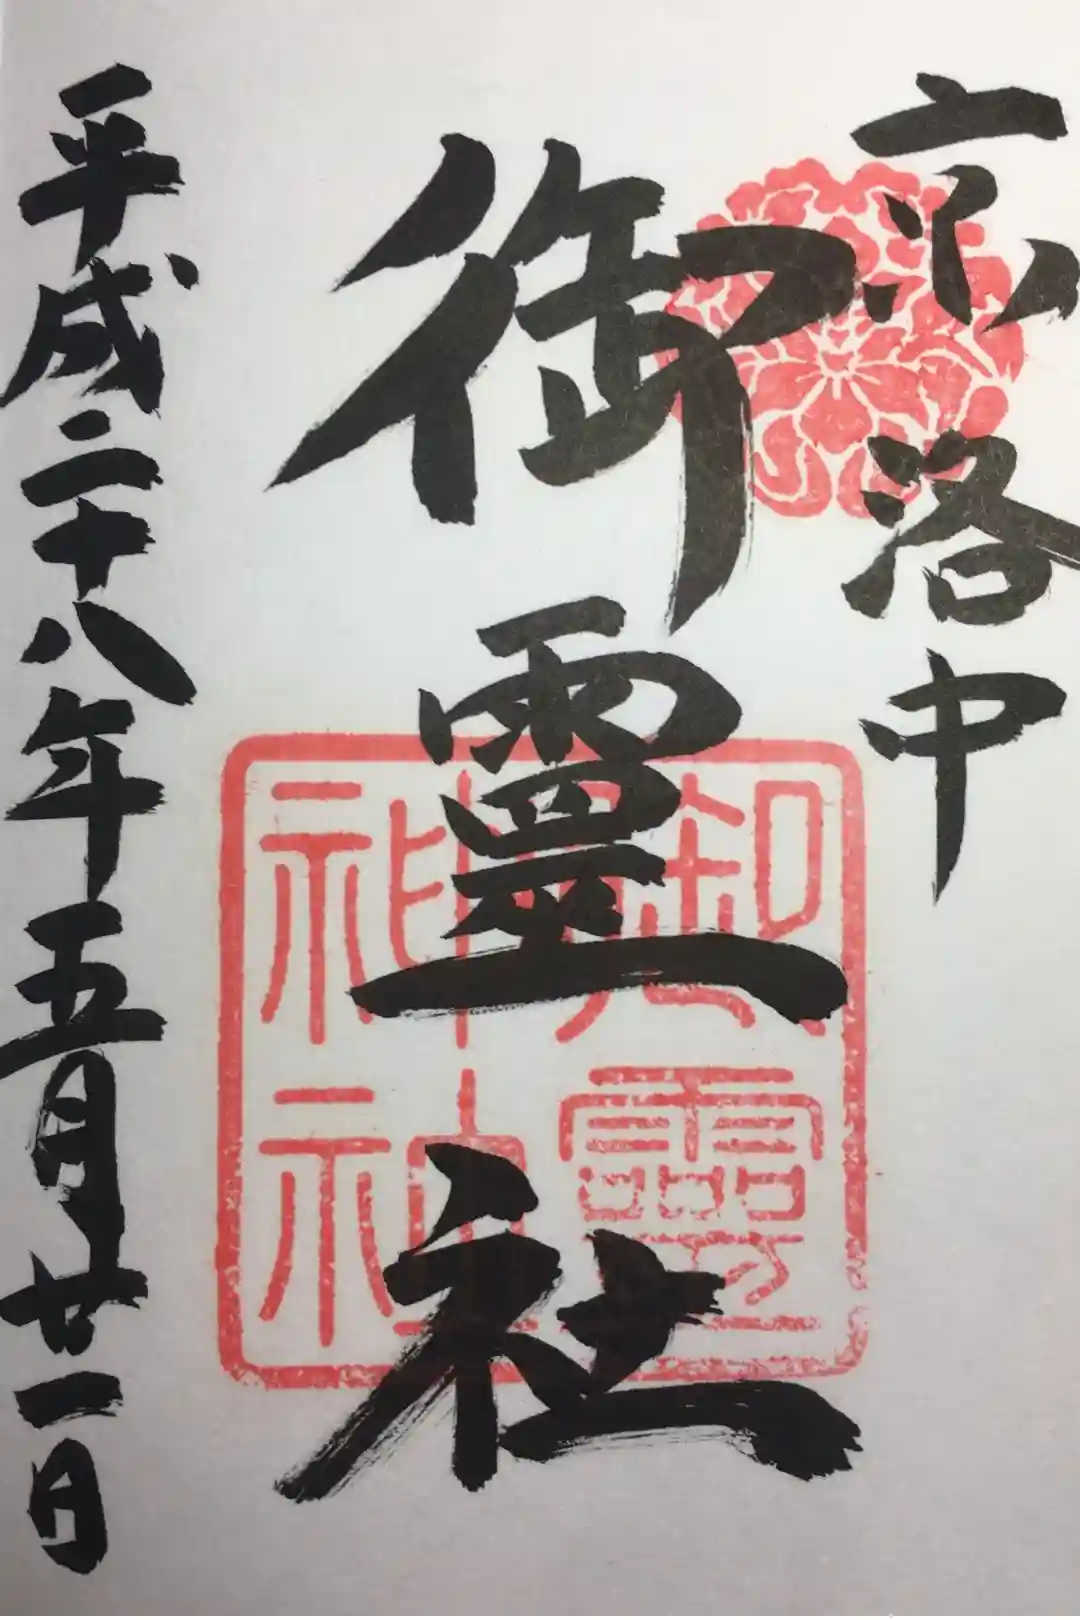 京洛中
御靈社
御靈
神社
平成二十八年五月廿一日